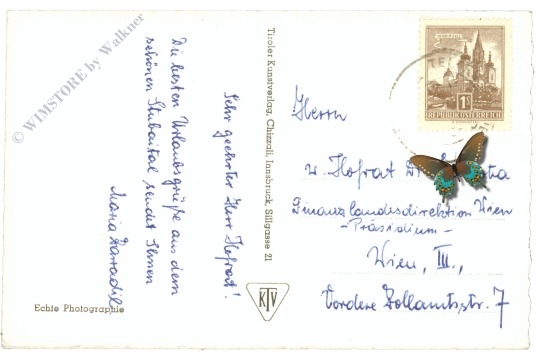 © WIMSTORE by Walkner
Sehr geehrter Herr Hofrat!
Die besten Urlaubsgrüße aus dem
schönen Stubaital sendet Ihnen
Maria
Echte Photographie
Tiroler Kunstverlag, Chizzali, Innsbruck, Sillgasse 21
KTV
1S
REPUBLIK ÖSTERREICH
Herrn
w. Hofrat
Finanzlandesdirektion Wien
- Präsidium -
Wien, III.,
Vordere Zollamtsstr. 7